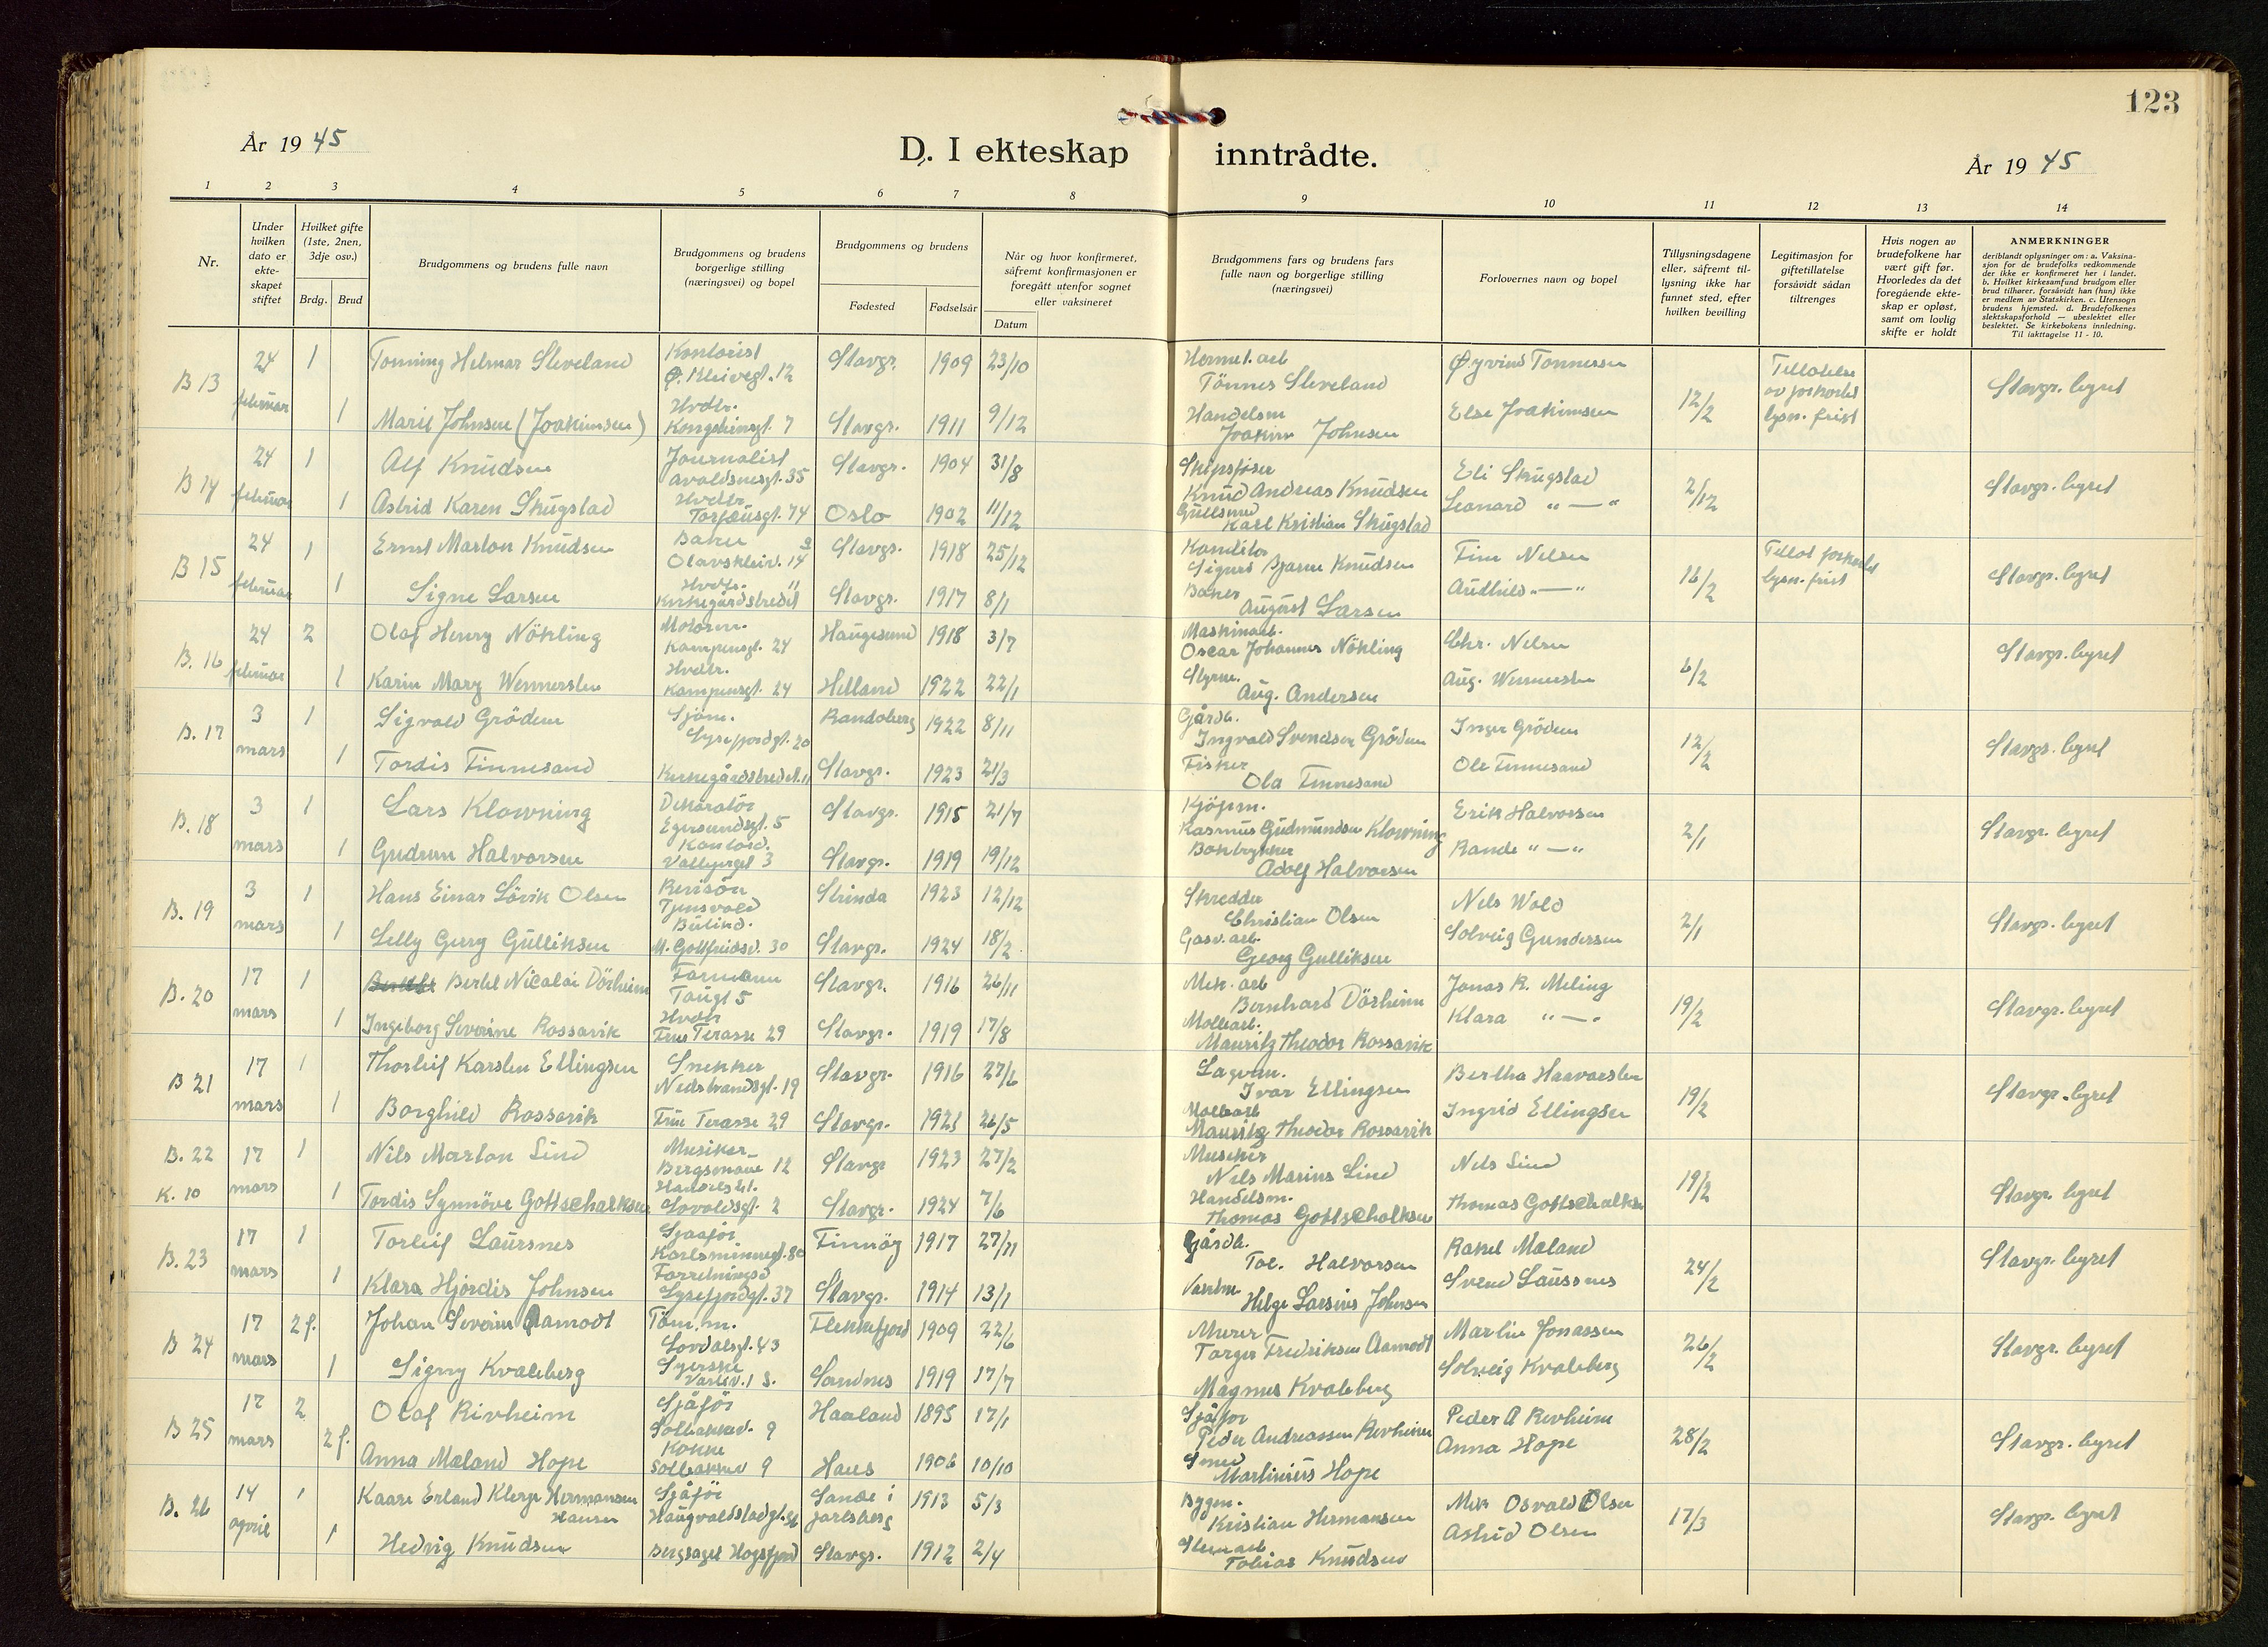 123
År 19 45
D. I ekteskap inntrådte.
År 19 45
1 2 3 4 5 6 7 8 9 10 11 12 13 14
Nr.
Under hvilken dato er ekte- skapet stiftet
Hvilket gifte (1ste, 2nen, 3dje osv.)
Brdg. Brud
Brudgommens og brudens fulle navn
Brudgommens og brudens borgerlige stilling (næringsvei) og bopel
Brudgommens og brudens
Fødested Fødselsår Datum
Når og hvor konfirmeret, såfremt konfirmasjonen er foregått utenfor sognet eller vaksineret
Brudgommens fars og brudens fars fulle navn og borgerlige stilling (næringsvei)
Forlovernes navn og bopel
Tillysningsdagene eller, såfremt til- lysning ikke har funnet sted, efter hvilken bevilling
Legitimasjon for giftetillatelse forsåvidt sådan tiltrenges
Hvis nogen av brudefolkene har vært gift før. Hvorledes da det foregående ekte- skap er opløst, samt om lovlig skifte er holdt
ANMERKNINGER
deriblandt oplysninger om: a. Vaksina- sjon for de brudefolks vedkommende der ikke er konfirmeret her i landet. b. Hvilket kirkesamfund brudgom eller brud tilhører, forsåvidt han (hun) ikke er medlem av Statskirken. c. Utensogn brudens hjemsted. d. Brudefolkenes slektskapsforhold — ubeslektet eller beslektet. Se kirkebokens innledning. Til iakttagelse 11 - 10.
B 13 24 februar 1 Tonning Helmar Sleveland Kontorist Ø. Kleivegt. 12 Stavgr. 1909 23/10 Hermet. arb Tönnes Sleveland Øyvind Tonnessen 12/2 Tillatelse av forkortet lysn. frist Stavgr. byret
1 Marie Johnsen (Joakimsen) Hvdtr. Kongsteinsgt. 7 Stavgr. 1911 9/12 Handelsm Joakim Johnsen Else Joakimsen
B 14 24 februar 1 Alf Knudsen Journalist Avaldsnesgt. 35 Stavgr. 1904 31/8 Skipsförer Knud Andreas Knudsen Eli Skugstad 2/12 Stavgr. byret
1 Astrid Karen Skugstad Hvdtr. Torfæusgt. 74 Oslo 1902 11/12 Gullsmed Karl Kristian Skugstad Leonard " — "
B 15 24 februar 1 Ernst Marton Knudsen Baker Olavskleiv. 14 Stavgr. 1918 25/12 Konditor Sigurd Bjarne Knudsen Finn Nelsen 16/2 Tillat forkortet lysn. frist Stavgr. byret
1 Signe Larsen Hvdtr. Kirkegårdstredet 11 Stavgr. 1917 8/1 Baker August Larsen Audhild " — "
B. 16 24 februar 2 Olaf Henry Nökling Motorm. Kampensgt. 24 Haugesund 1918 3/7 Maskinarb. Oscar Johannes Nökling Chr. Nelsen 6/2 Stavgr. byret
1 Karin Mary Wennersten Hvdtr. Kampensgt. 24 Helland 1922 22/1 Styrm. Aug. Andersen Aug. Wennersten
B. 17 3 mars 1 Sigvald Grödem Sjöm. Lysefjordgt. 20 Randaberg 1922 8/11 Gårdb. Ingvald Svendsen Grödem Inger Grödem 12/2 Stavgr. byret
1 Tordis Finnesand Kirkegårdstredet. 11 Stavgr. 1923 21/3 Fisker Ola Finnesand Ole Finnesand
B. 18 3 mars 1 Lars Klowning Dekoratör Egersundsgt. 5 Stavgr. 1915 21/7 Kjöpm. Rasmus Gudmundsen Klowning Erik Halvorsen 2/1 Stavgr. byret
1 Gudrun Halvorsen Kontord. Vallyergt 3 Stavgr. 1919 19/12 Boktrykker Adolf Halvorsen Rande " — "
B. 19 3 mars 1 Hans Einar Lövik Olsen Revisör Tjensvold Strinda 1923 12/12 Skredder Christian Olsen Nels Wold 2/1 Stavgr. byret
1 Lelly Gerry Gulliksen Butikd. M. Gottfriedsv. 30 Stavgr. 1924 18/2 Gasv. arb. Georg Gulliksen Solveig Gundersen
B. 20 17 mars 1 Bertel Nicolai Dörheim Formann Taugt 5 Stavgr. 1916 26/11 Mek. arb Bernhard Dörheim Jonas R. Meling 19/2 Stavgr. byret
1 Ingeborg Severine Rossavik Hvdtr Frue Terasse 29 Stavgr. 1919 17/8 Mollearb. Mauritz Theodor Rossavik Klara " — "
B 21 17 mars 1 Thorleif Karsten Ellingsen Snekker Nedstrandsgt. 19 Stavgr. 1916 27/6 Lagerm. Ivar Ellingsen Bertha Haavorsten 19/2 Stavgr. byret
1 Borghild Rossavik Frue Terasse 29 Stavgr. 1921 26/5 Mollearb Mauritz Theodor Rossavik Ingrid Ellingsen
B. 22 K. 10 17 mars 1 Nils Marton Lind Musiker Bergsmaue 12 Stavgr 1923 27/2 Musiker Nils Marius Lind Nels Lind 19/2 Stavgr. byret
1 Tordis Synnöve Gottschalksen Lovoldsgt. 2 Stavgr. 1924 7/6 Handelsm. Thomas Gottschalksen Thomas Gottschalksen
B. 23 17 mars 1 Torleif Laursnes Sjaaför Karlsminnegt. 80 Finnöy 1917 27/11 Gårdb. Tol. Halvorsen Rakel Maland 24/2 Stavgr. byret
1 Klara Hjördis Johnsen Forretningsd Lysefjordgt. 37 Stavgr. 1914 13/1 Helge Larsius Johnsen Svend Laursnes
B 24 17 mars 2 f. Johan Severin Aamodt Töm. m. Lovdalsgt. 43 Flekkefjord 1909 22/6 Murer Torger Fredriksen Aamodt Martin Jonassen 26/2 Stavgr. byret
1 Signy Kvaleberg Syerske Varliv. 1 S. Sandnes 1919 17/7 Magnus Kvaleberg Solveig Kvaleberg
B 25 17 mars 2 Olaf Rivheim Sjåför Solbakkev. 9 Haaland 1895 17/1 Sjåför Peder Andreassen Revheim Peder A Revheim 28/2 Stavgr. byret
2 f. Anna Maland Hope Kokke Solbakkev 9 Haus 1906 10/10 Smed Martinius Hope Anna Hope
B. 26 14 april 1 Kaare Erland Klerge Hermansen Hansen Sjåför Haugvaldstadgt. Sande i Jarlsberg 1913 5/3 Bygm. Kristian Hermansen Mek Osvald Olsen 17/3 Stavgr. byret
1 Hedvig Knudsen Bergsagel Hogsfjord Stavgr. 1912 2/4 Tobias Knudsen Astrid Olsen